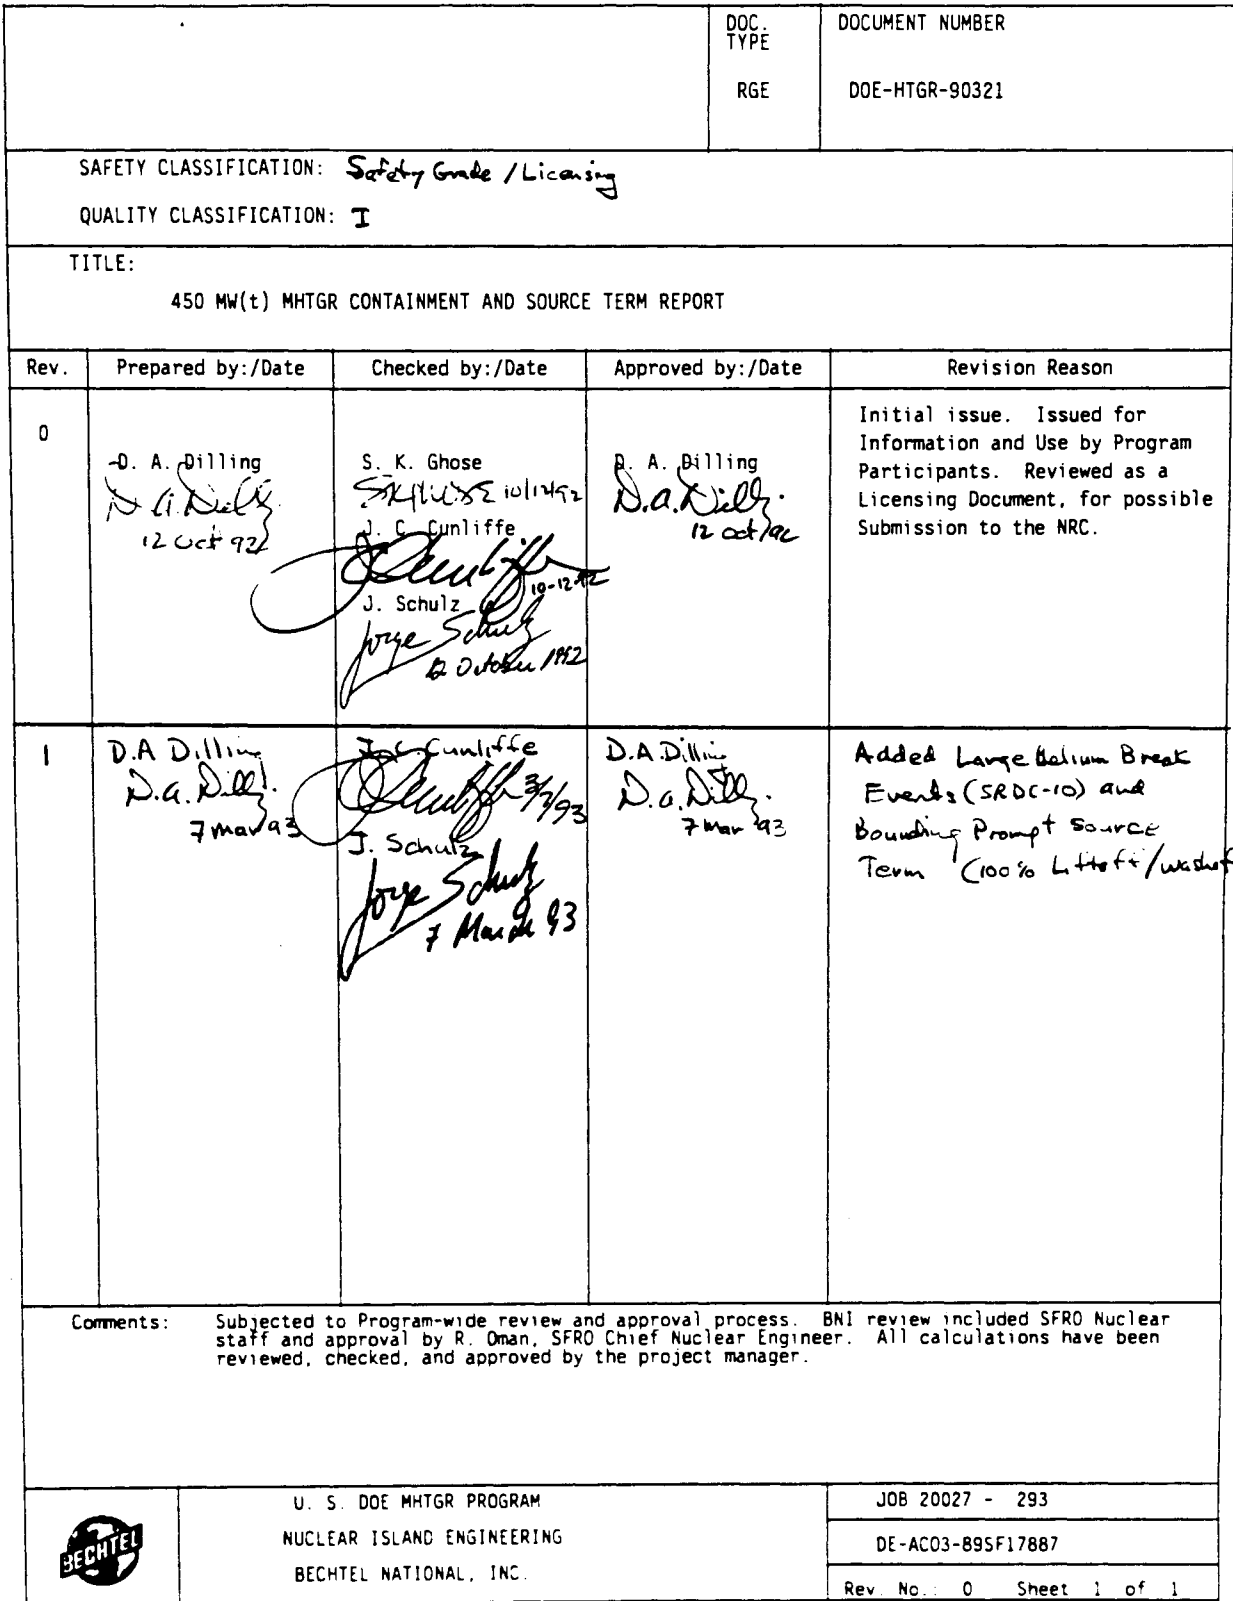 DOC. TYPE
DOCUMENT NUMBER
RGE
DOE-HTGR-90321
SAFETY CLASSIFICATION: Safety Grade / Licensing
QUALITY CLASSIFICATION: I
TITLE:
450 MW(t) MHTGR CONTAINMENT AND SOURCE TERM REPORT
Rev.
Prepared by:/Date
Checked by:/Date
Approved by:/Date
Revision Reason
0
D. A. Dilling
D.A. Dilling
12 Oct 92
S. K. Ghose
10/12/92
J. C. Cunliffe
10-12-92
J. Schulz
Jorge Schulz
12 October 1992
D. A. Dilling
D.a. Dilling.
12 oct 92
Initial issue. Issued for
Information and Use by Program
Participants. Reviewed as a
Licensing Document, for possible
Submission to the NRC.
1
D.A Dilling
D.a. Dilling.
7 mar 93
J. C. Cunliffe
3/7/93
J. Schulz
Jorge Schulz
7 March 93
D.A. Dilling
D.a. Dilling.
7 mar 93
Added Large Helium Break
Events (SRDC-10) and
Bounding Prompt Source
Term (100% Liftoff/washof
Comments:
Subjected to Program-wide review and approval process. BNI review included SFRO Nuclear
staff and approval by R. Oman, SFRO Chief Nuclear Engineer. All calculations have been
reviewed, checked, and approved by the project manager.
BECHTEL
U. S. DOE MHTGR PROGRAM
NUCLEAR ISLAND ENGINEERING
BECHTEL NATIONAL, INC.
JOB 20027 - 293
DE-AC03-89SF17887
Rev. No.: 0 Sheet 1 of 1